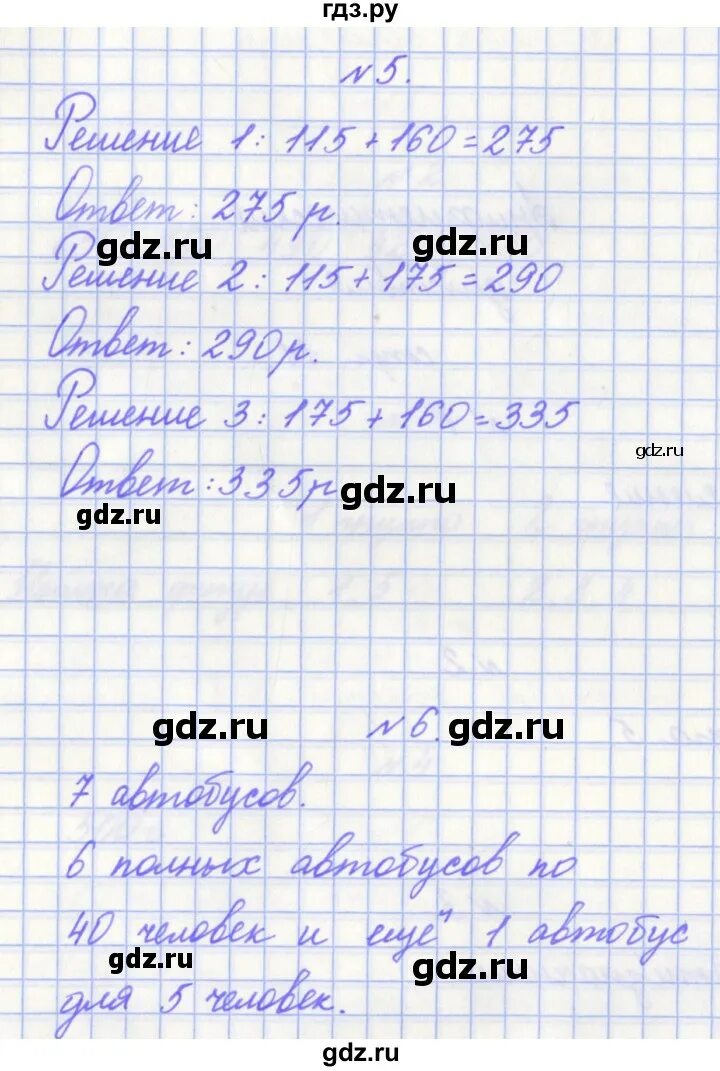 гдз.ру
№5.
Решение 1: 115+160=275
Ответ: 275 р.
gdz.ru
gdz.ru
Решение 2: 115+175=290
Ответ: 290 р.
Решение 3: 175+160=335
gdz.ru
Ответ: 335 р
gdz.ru
gdz.ru
gdz.ru
№6.
gdz.ru
7 автобусов.
6 полных автобусов по
40 человек и ещё 1 автобус
gdz.ru
gdz.ru
для 5 человек.
gdz.ru